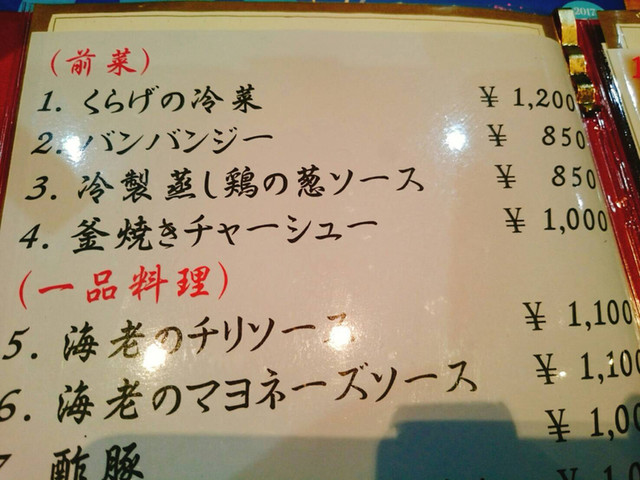 2017
(前菜)
1. くらげの冷菜 ¥ 1,200
2. バンバンジー ¥ 850
3. 冷製蒸し鶏の葱ソース ¥ 850
4. 釜焼きチャーシュー ¥ 1,000
(一品料理)
5. 海老のチリソース ¥ 1,100
6. 海老のマヨネーズソース ¥ 1,100
酢豚 ¥ 1,00